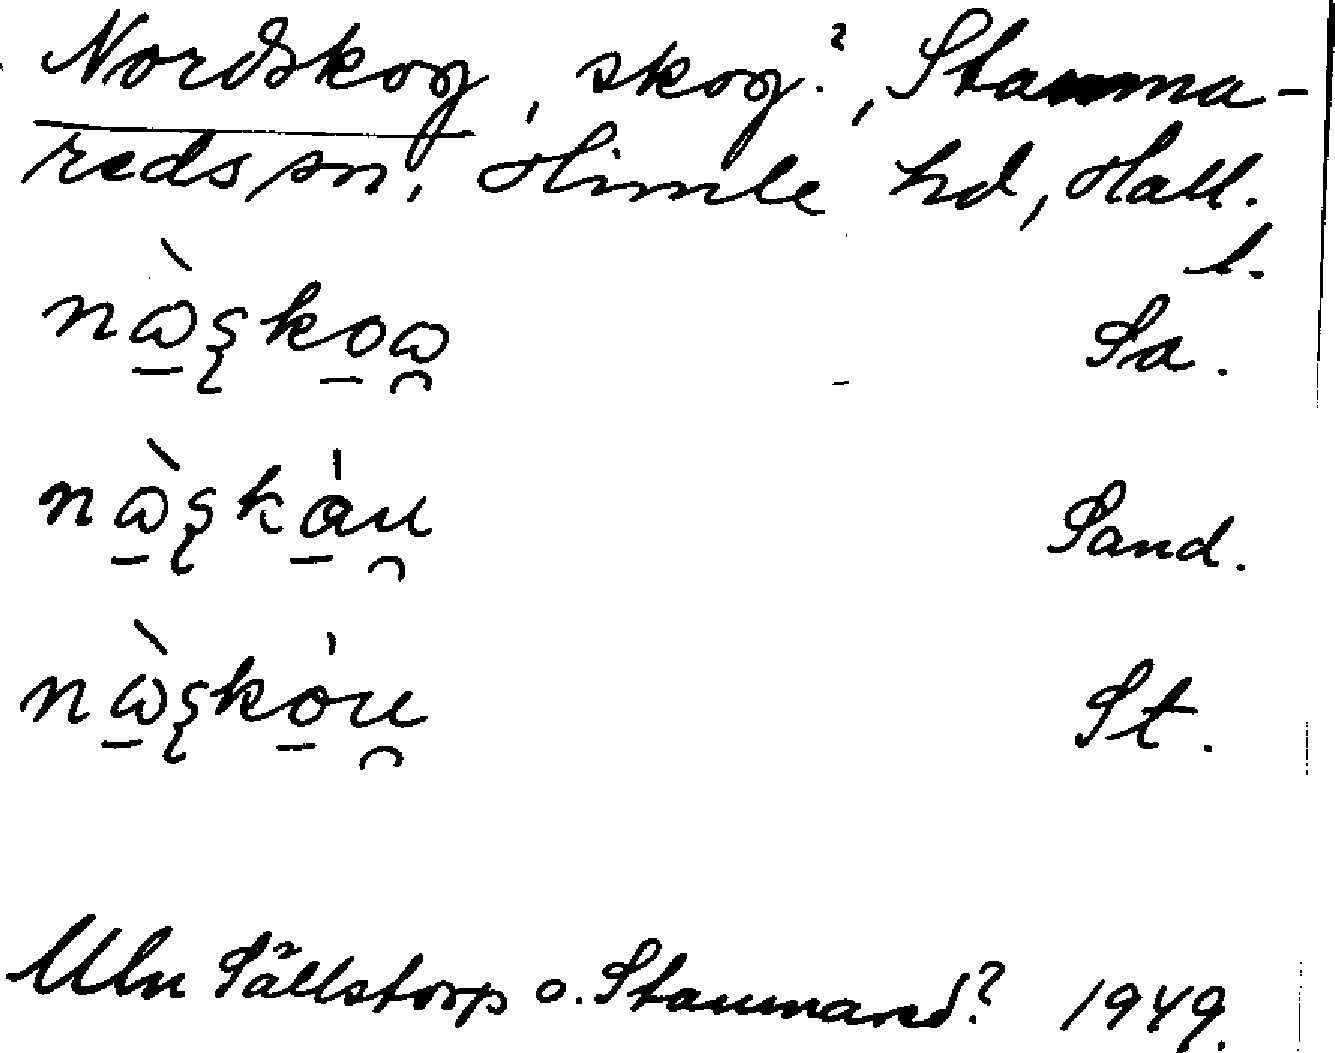 Nordskog, skog?, Stamma-
reds sn. Himle hd, Hall.
l.
nὼ̱ʂko̱ω̯ Sa.
nὼ̱ʂkȧ̱u̯ Sand.
nὼ̱ʂkȯ̱u̯ St.
Uln Sällstorp o. Stamnared? 1949.